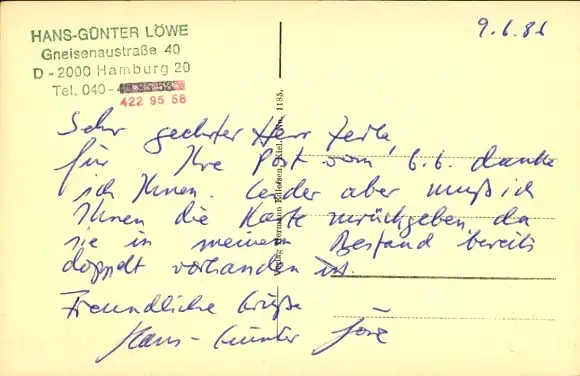 HANS-GÜNTER LÖWE
Gneisenaustraße 40
D-2000 Hamburg 20
Tel. 040-
422 95 58
9.6.86
Sehr geehrter Herr
für Ihre Post vom 6.6. danke
ich Ihnen. Leider aber muß ich
Ihnen die Karte zurückgeben, da
sie in meinem Bestand bereits
doppelt vorhanden ist.
Freundliche Grüße
Hans-Günter Löwe
Verlag Hermann Kiel, No. 1185.